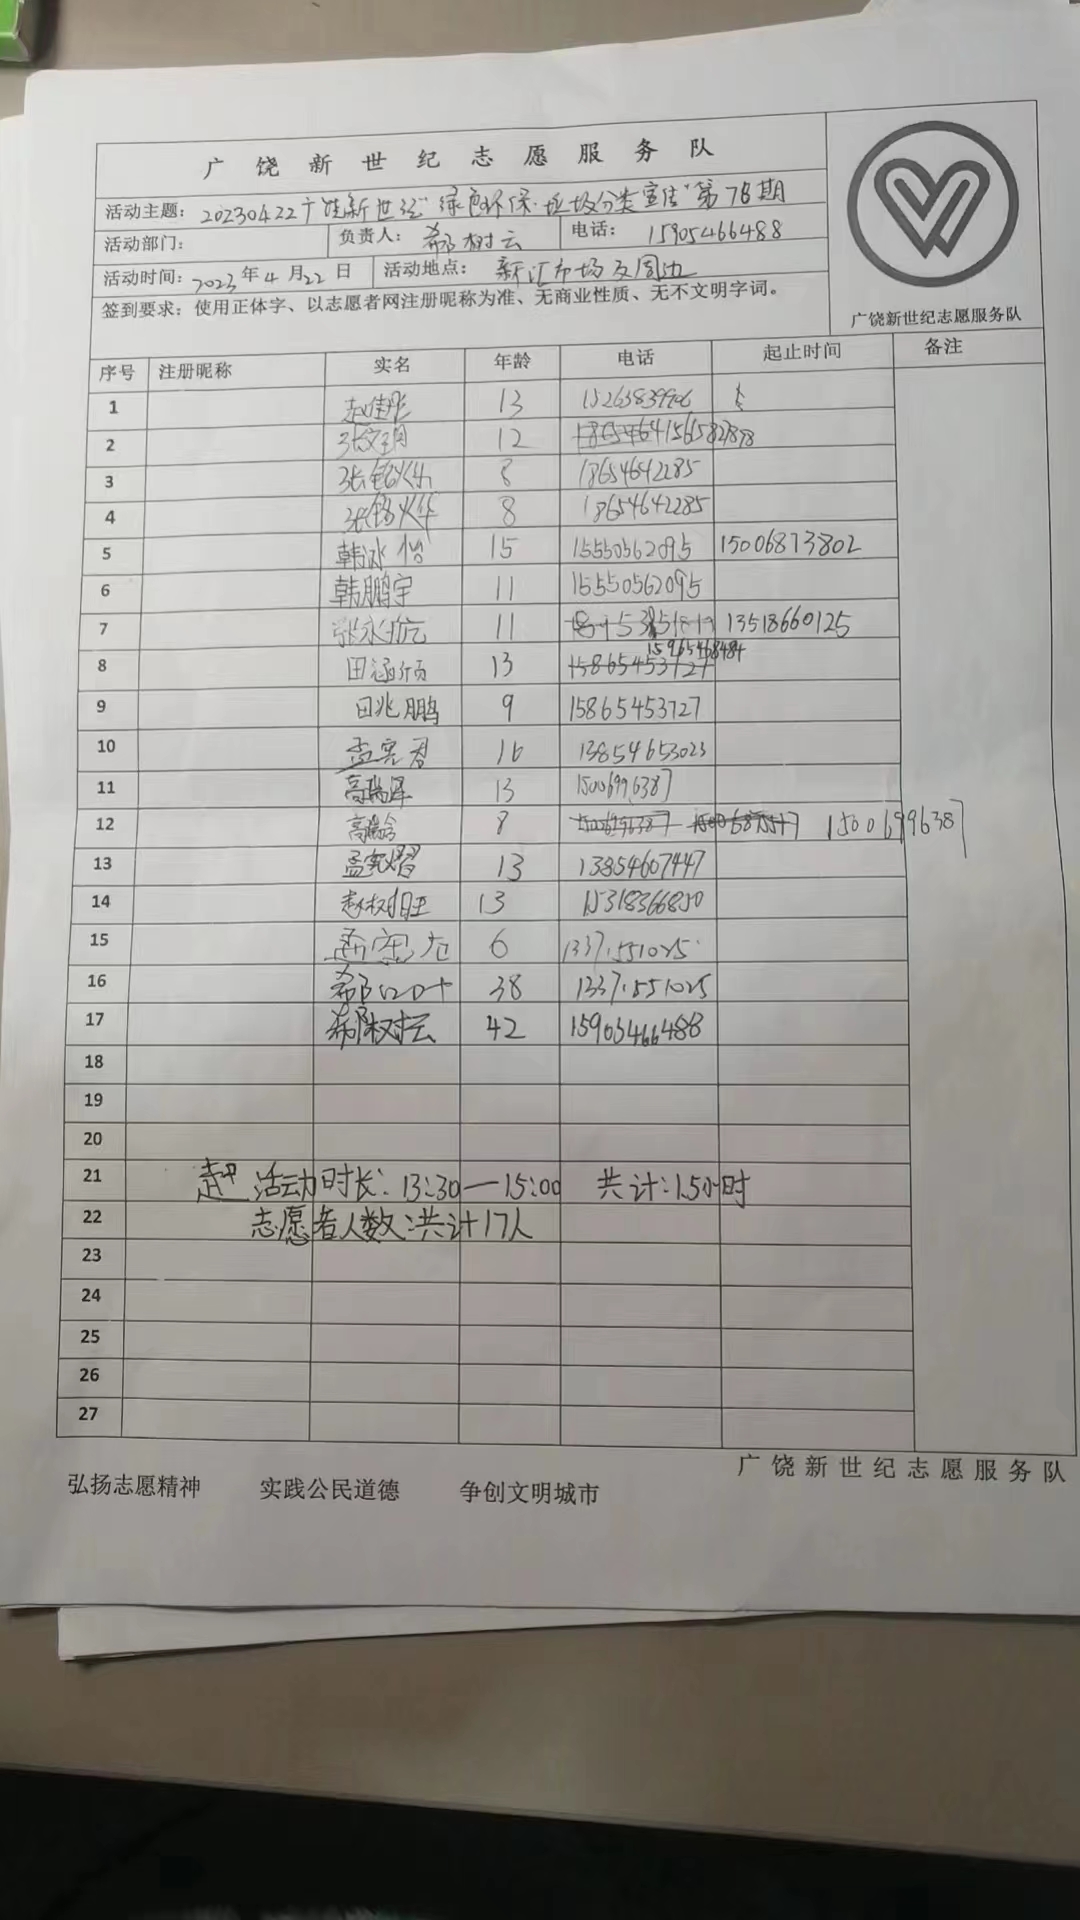 广饶新世纪志愿服务队
活动主题: 20230422广饶新世纪"绿色环保·垃圾分类宣传"第78期
活动部门: 负责人: 郗树云 电话: 15905466488
活动时间: 2023年4月22日 活动地点: 新汇市场及周边
签到要求: 使用正体字、以志愿者网注册昵称为准、无商业性质、无不文明字词。
广饶新世纪志愿服务队
序号 注册昵称 实名 年龄 电话 起止时间 备注
1 13 15263839906
2 12 1565827898
3 8 18654642285
4 8 18654642285
5 韩冰怡 15 15550562095 15006873802
6 韩鹏宇 11 15550562095
7 11 13518660125
8 田涵 13 15965468484
9 田兆鹏 9 15865453727
10 孟宪君 16 13854653023
11 高瑞泽 13 15006996387
12 高瑞 8 15006996387
13 孟宪熠 13 13854607447
14 赵树旺 13 15318366850
15 6
16 38
17 郗树云 42 15905466488
18
19
20
21 活动时长: 13:30—15:00 共计: 1.5小时
22 志愿者人数: 共计17人
23
24
25
26
27
弘扬志愿精神 实践公民道德 争创文明城市 广饶新世纪志愿服务队